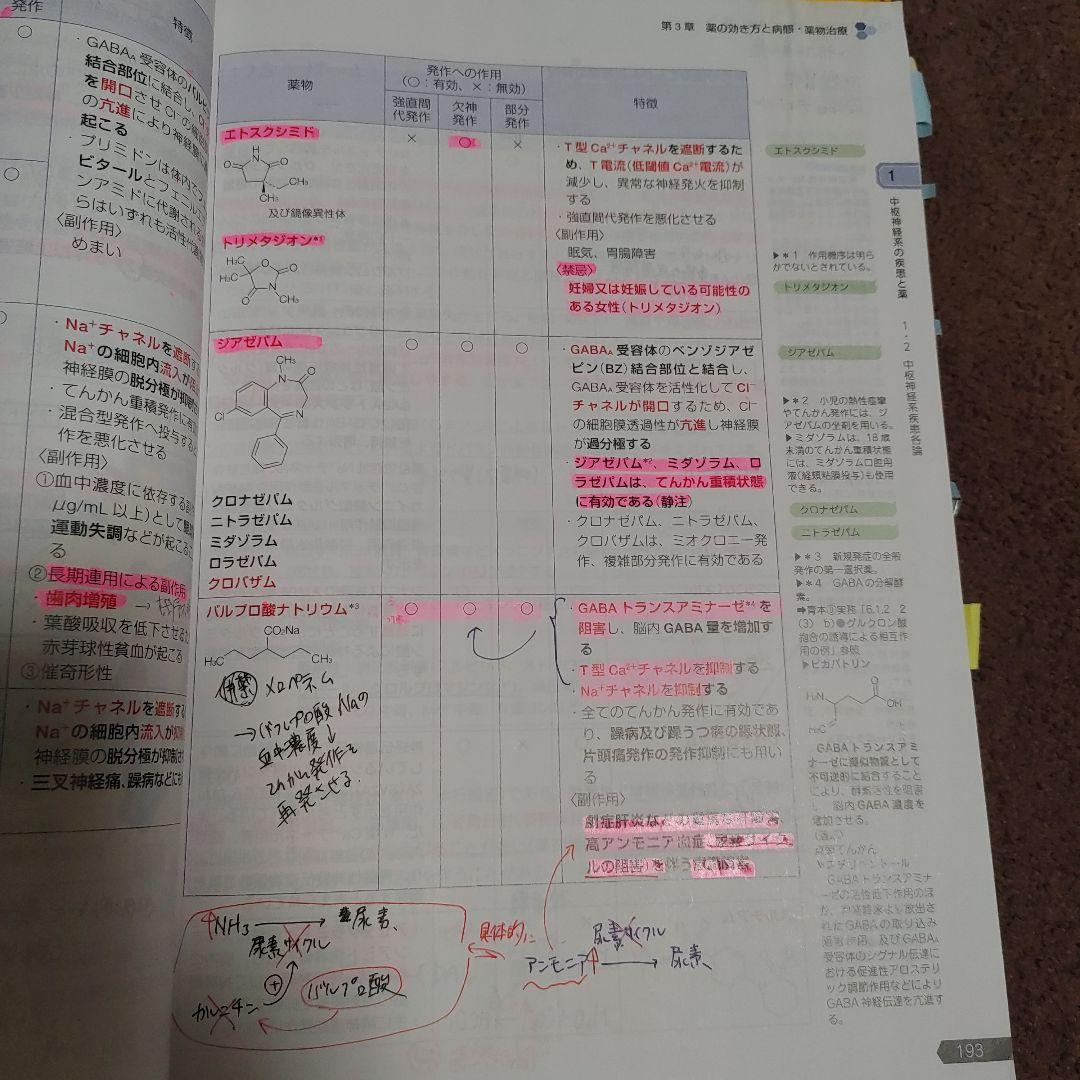 発作
特徴
・GABAA 受容体のバルビ
結合部位に結合し、
を開口させ Cl⁻の
の亢進により神経膜
起こる
・プリミドンは体内で
ビタールとフェニルエ
ンアミドに代謝される
らはいずれも活性代謝
〈副作用〉
めまい
・Na⁺チャネルを遮断す
Na⁺の細胞内流入が
神経膜の脱分極が抑制
・てんかん重積発作に有効
・混合型発作へ投与する
作を悪化させる
〈副作用〉
①血中濃度に依存する
μg/mL 以上)として
運動失調などが起こる
る
②長期連用による副作用
・歯肉増殖
・葉酸吸収を低下させる
赤芽球性貧血が起こる
③催奇形性
・Na⁺チャネルを遮断する
Na⁺の細胞内流入が抑
神経膜の脱分極が抑制
・三叉神経痛、躁病などにも
第3章 薬の効き方と病態・薬物治療
薬物
発作への作用
(○:有効、×:無効)
特徴
強直間
代発作
欠神
発作
部分
発作
エトスクシミド
× ○ ×
H
N
O
O
CH₃
CH₃
及び鏡像異性体
トリメタジオン*¹
H₃C
H₃C
O
O
O
N
CH₃
・T 型 Ca²⁺チャネルを遮断するた
め、T 電流(低閾値 Ca²⁺電流)が
減少し、異常な神経発火を抑制
する
・強直間代発作を悪化させる
〈副作用〉
眠気、胃腸障害
〈禁忌〉
妊婦又は妊娠している可能性の
ある女性(トリメタジオン)
ジアゼパム
○ ○ ○
CH₃
N
O
Cl
N
クロナゼパム
ニトラゼパム
ミダゾラム
ロラゼパム
クロバザム
・GABAA 受容体のベンゾジアゼ
ピン(BZ)結合部位と結合し、
GABAA 受容体を活性化して Cl⁻
チャネルが開口するため、Cl⁻
の細胞膜透過性が亢進し神経膜
が過分極する
・ジアゼパム*²、ミダゾラム、ロ
ラゼパムは、てんかん重積状態
に有効である(静注)
・クロナゼパム、ニトラゼパム、
クロバザムは、ミオクロニー発
作、複雑部分発作に有効である
バルプロ酸ナトリウム*³
○ ○ ○
CO₂Na
H₃C
CH₃
併禁 メロペネム
→バルプロ酸Naの
血中濃度↓
てんかん発作を
再発させる.
・GABA トランスアミナーゼ*⁴を
阻害し、脳内 GABA 量を増加す
る
・T 型 Ca²⁺チャネルを抑制する
・Na⁺チャネルを抑制する
・全てのてんかん発作に有効であ
り、躁病及び躁うつ病の躁状態、
片頭痛発作の発作抑制にも用い
る
〈副作用〉
劇症肝炎な
高アンモニア血症
ルの阻害)を伴う
エトスクシミド
▶*1 作用機序は明ら
かでないとされている。
トリメタジオン
ジアゼパム
▶*2 小児の熱性痙攣
やてんかん発作には、ジ
アゼパムの坐剤を用いる。
▶ミダゾラムは、18歳
未満のてんかん重積状態
には、ミダゾラム口腔用
液(経頬粘膜投与)も使用
できる。
クロナゼパム
ニトラゼパム
▶*3 新規発症の全般
発作の第一選択薬。
▶*4 GABA の分解酵
素。
➡青本⑨実務「6.1.2 2
(3) b)●グルクロン酸
抱合の誘導による相互作
用の例」参照
▶ビガバトリン
H₂N
O
OH
H₂C
GABA トランスアミ
ナーゼに擬似物質として
不可逆的に結合すること
により、酵素活性を阻害
し、脳内 GABA 濃度を
増加させる。
GABA トランスアミナ
ーゼの活性低下作用のほ
か、神経終末より放出さ
れた GABA の取り込み
阻害作用、及び GABAA
受容体のシグナル伝達に
おける促進性アロステリ
ック調節作用などにより
GABA 神経伝達を亢進す
る。
1
中枢神経系の疾患と薬
1・2 中枢神経系疾患各論
↑NH₃ → 尿素.
尿素サイクル
⊕
カルニチン
バルプロ酸
具体的に
尿素サイクル
アンモニア↑ → 尿素
193